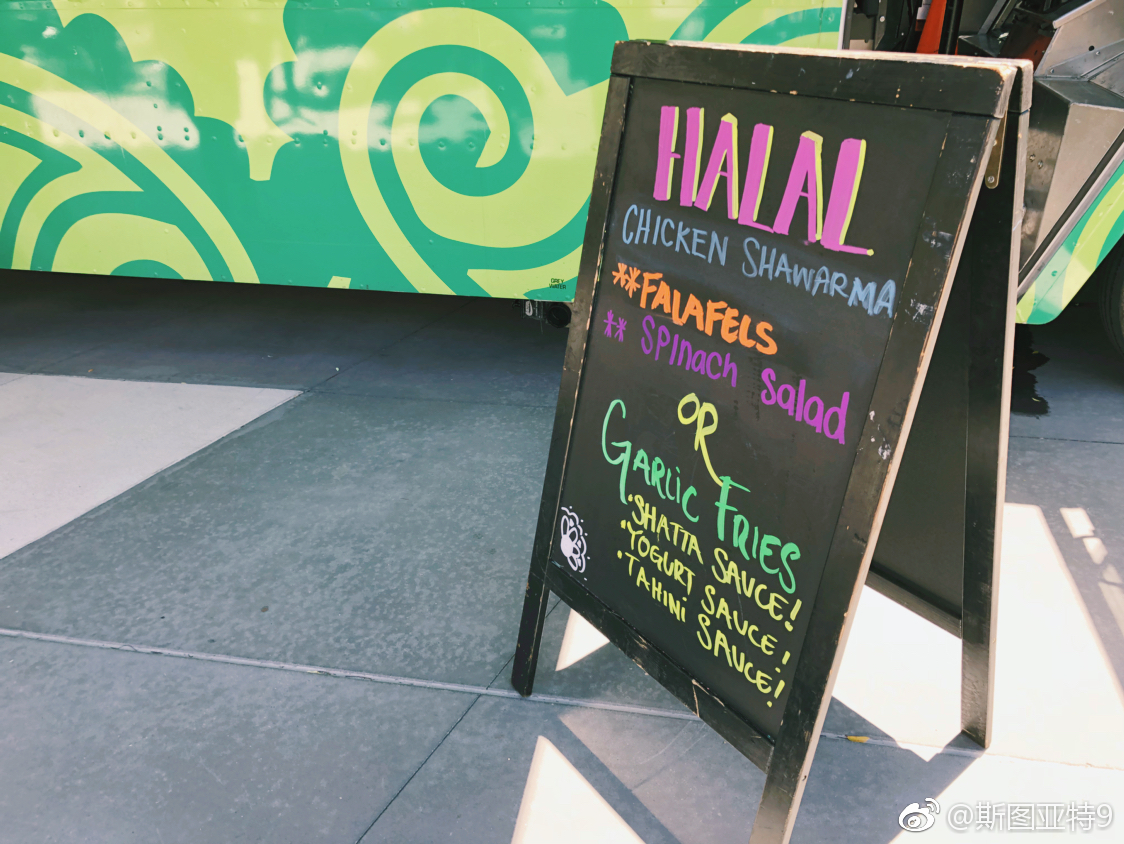 HALAL
CHICKEN SHAWARMA
**FALAFELS
** Spinach Salad
OR
GARLIC FRIES
·SHATTA SAUCE!
·YOGURT SAUCE!
·TAHINI SAUCE!
GREY
WATER
@斯图亚特9